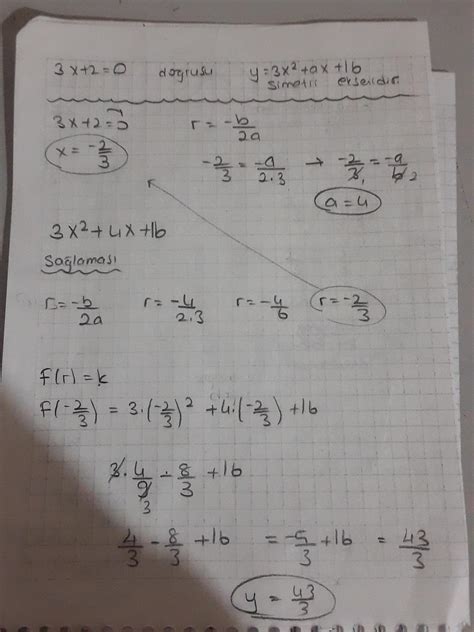 3x+2=0 doğrusu y=3x²+ax+16
simetri eksenidir
3x+2=0 r=-b/2a
x=-2/3 -2/3=-a/2.3 → -2/3=-a/6 2
a=4
3x²+4x+16
Sağlaması
r=-b/2a r=-4/2.3 r=-4/6 r=-2/3
f(r)=k
f(-2/3) = 3.(-2/3)²+4.(-2/3)+16
3.4/9 3 - 8/3 +16
4/3 - 8/3 +16 = -5/3 +16 = 43/3
y = 43/3